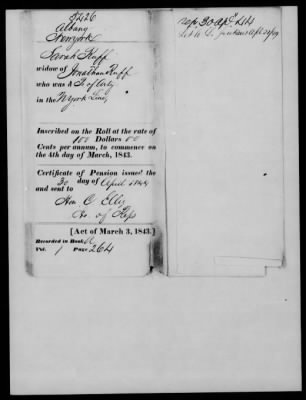 5426
Albany
New york
Sarah Ruff
widow of Jonathan Ruff
who was a
in the N york Line
Inscribed on the Roll at the rate of
100 Dollars 00
Cents per annum, to commence on
the 4th day of March, 1843.
Certificate of Pension issued the
30 day of April 1844
and sent to
Hon. C Ellis
Ho. of Reps
[Act of March 3, 1843.]
Recorded in Book A
Vol. 1 Page 264
30 Apl 1844